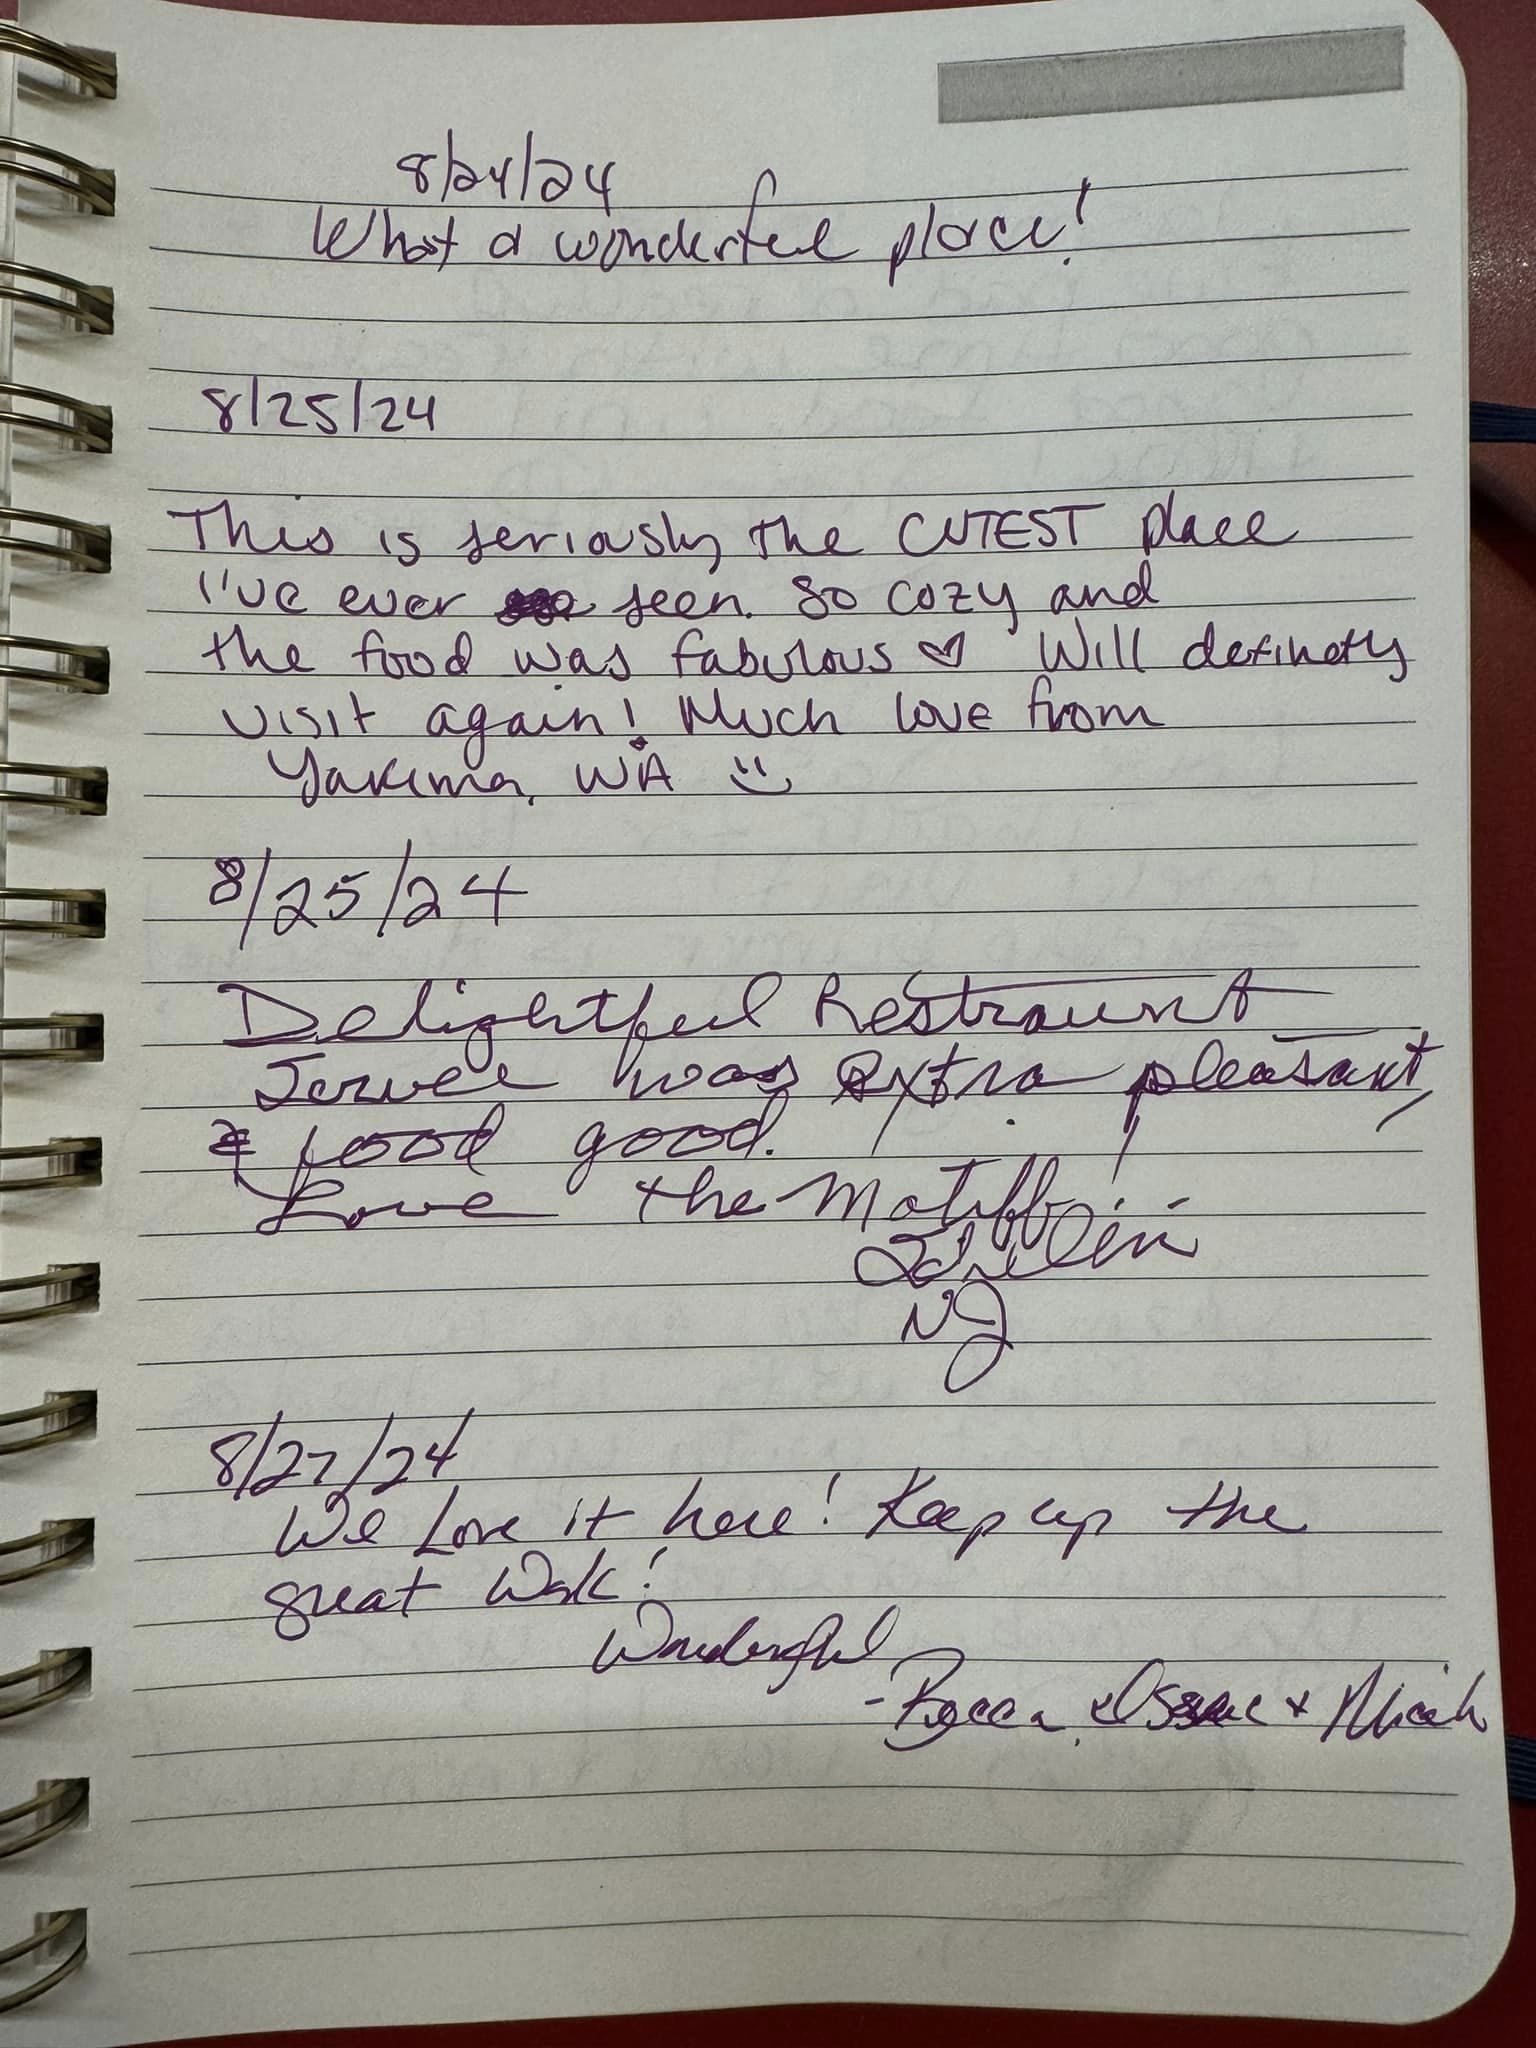 8/24/24
What a wonderful place!
8/25/24
This is seriously the CUTEST place
I've ever seen. So cozy and
the food was fabulous ♡ Will definetly
visit again! Much love from
Yakima, WA
8/25/24
Delightful Restraunt
was extra pleasant,
& food good.
Love the Motiff
NJ
8/27/24
We Love it here! Keep up the
great Work!
Wonderful
- Becca, & Issac & Micah